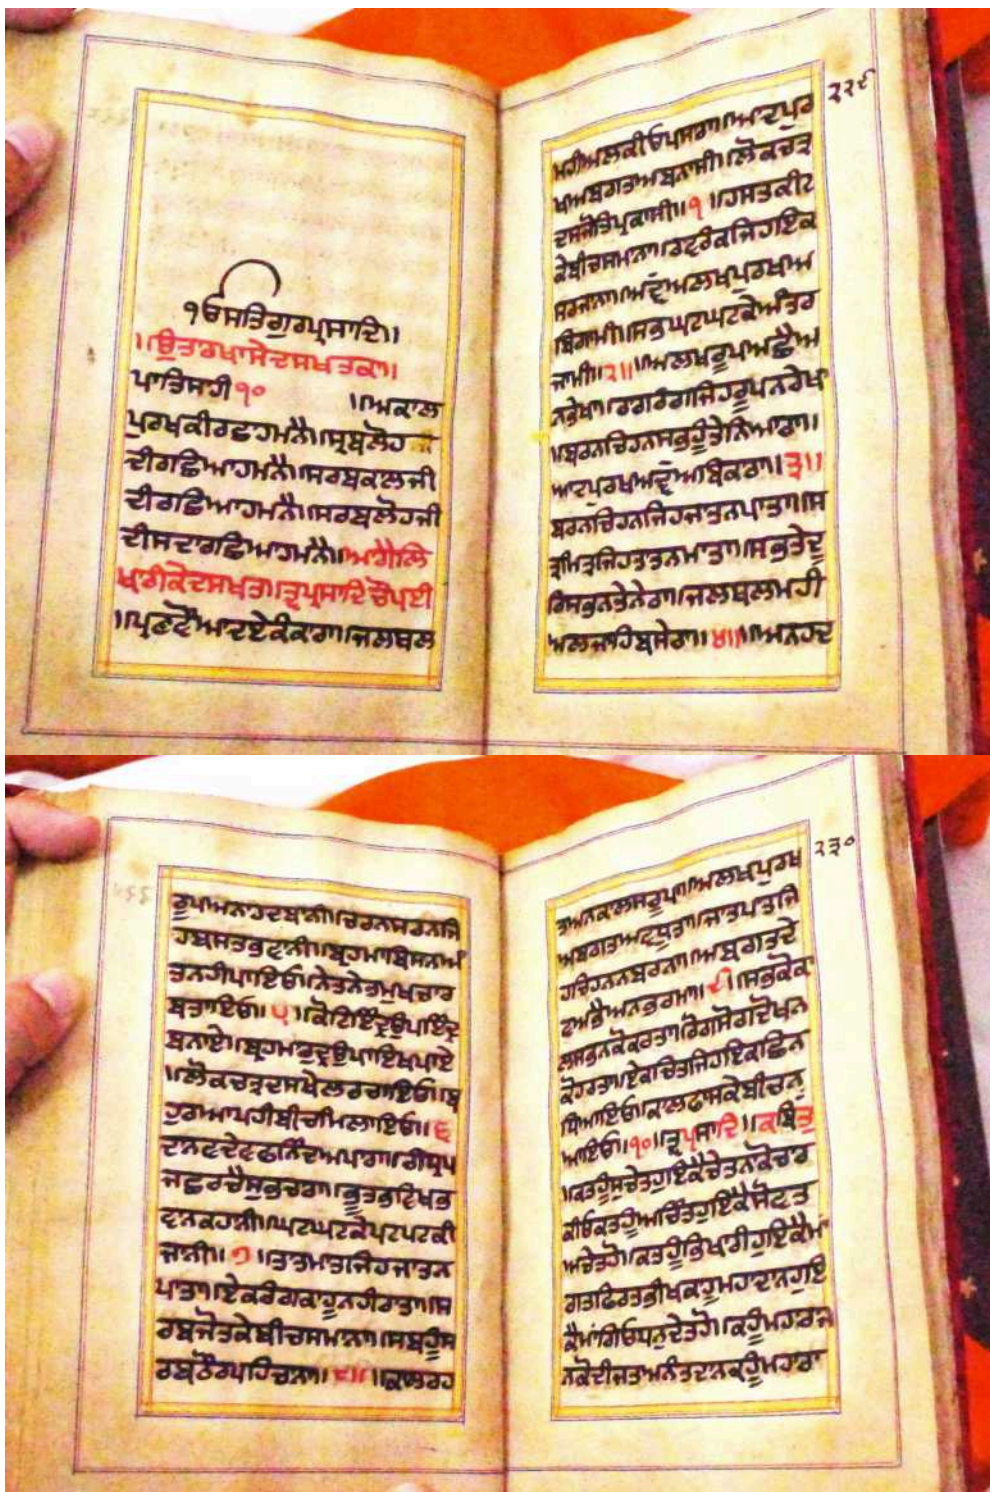 ੧ਓਸਤਿਗੁਰਪ੍ਰਸਾਦਿ॥
॥ਉਤਾਰਖਾਸੇਦਸਖਤਕਾ॥
ਪਾਤਿਸਾਹੀ੧੦ ॥ਅਕਾਲ
ਪੁਰਖਕੀਰਛਾਹਮਨੈ॥ਸ੍ਰਬਲੋਹ
ਦੀਰਛਿਆਹਮਨੈ॥ਸਰਬਕਾਲਜੀ
ਦੀਰਛਿਆਹਮਨੈ॥ਸਰਬਲੋਹਜੀ
ਦੀਸਦਾਰਛਿਆਹਮਨੈ॥ਆਗੈਲਿ
ਖਾਰੀਕੇਦਸਖਤ॥ਤ੍ਵਪ੍ਰਸਾਦਿਚੌਪਈ
॥ਪ੍ਰਣਵੌਆਦਏਕੰਕਾਰਾ॥ਜਲਥਲ
੨੨੯
ਮਹੀਅਲਕੀਓਪਸਾਰਾ॥ਆਦਪੁਰ
ਖਅਬਗਤਅਬਨਾਸੀ॥ਲੋਕਚਤ੍ਰ
ਦਸਜੋਤਿਪ੍ਰਕਾਸੀ॥੧॥ਹਸਤਕੀਟ
ਕੇਬੀਚਸਮਾਨਾ॥ਰਾਵਰੰਕਜਿਹਇਕ
ਸਰਜਾਨਾ॥ਅਦ੍ਵੈਅਲਖਪੁਰਖਅ
ਬਿਗਾਮੀ॥ਸਭਘਟਘਟਕੇਅੰਤਰ
ਜਾਮੀ॥੨॥॥ਅਲਖਰੂਪਅਛੈਅ
ਨਭੇਖਾ॥ਰਾਗਰੰਗਜਿਹਰੂਪਨਰੇਖਾ
॥ਬਰਨਚਿਹਨਸਭਹੂੰਤੇਨਿਆਰਾ॥
ਆਦਪੁਰਖਅਦ੍ਵੈਅਬਿਕਾਰਾ॥੩॥
ਬਰਨਚਿਹਨਜਿਹਜਾਤਨਪਾਤਾ॥ਸ
ਤ੍ਰਮਿਤ੍ਰਜਿਹਤਾਤਨਮਾਤਾ॥ਸਭਤੇਦੂ
ਰਿਸਭਨਤੇਨੇਰਾ॥ਜਲਥਲਮਹੀ
ਅਲਜਾਹਿਬਸੇਰਾ॥੪॥॥ਅਨਹਦ
ਰੂਪਅਨਾਹਦਬਾਨੀ॥ਚਰਨਸਰਨਜਿ
ਹਬਸਤਭਵਾਨੀ॥ਬ੍ਰਹਮਾਬਿਸਨਅੰ
ਤਨਹੀਪਾਇਓ॥ਨੇਤਨੇਤਮੁਖਚਾਰ
ਬਤਾਇਓ॥੫॥ਕੋਟਿਇੰਦ੍ਰਉਪਇੰਦ੍ਰ
ਬਨਾਏ॥ਬ੍ਰਹਮਾਰੁਦ੍ਰਉਪਾਇਖਪਾਏ
॥ਲੋਕਚਤ੍ਰਦਸਖੇਲਰਚਾਇਓ॥ਬ
ਹੁਰਆਪਹੀਬੀਚਮਿਲਾਇਓ॥੬
ਦਾਨਵਦੇਵਫਨਿੰਦਅਪਾਰਾ॥ਗੰਧ੍ਰਪ
ਜਛਰਚੈਸੁਭਚਾਰਾ॥ਭੂਤਭਵਿਖਭ
ਵਾਨਕਹਾਨੀ॥ਘਟਘਟਕੇਪਟਪਟਕੀ
ਜਾਨੀ॥੭॥ਤਾਤਮਾਤਜਿਹਜਾਤਨ
ਪਾਤਾ॥ਏਕਰੰਗਕਾਹੂਨਹੀਰਾਤਾ॥ਸ
ਰਬਜੋਤਕੇਬੀਚਸਮਾਨਾ॥ਸਬਹੂੰਸ
ਰਬਠੌਰਪਹਿਚਾਨਾ॥੮॥॥ਕਾਲਰਹ
੨੩੦
ਤਅਨਕਾਲਸਰੂਪਾ॥ਅਲਖਪੁਰਖ
ਅਬਗਤਅਵਧੂਤਾ॥ਜਾਤਪਾਤਜਿ
ਹਚਿਹਨਨਬਰਨਾ॥ਅਬਗਤਦੇ
ਵਅਛੈਅਨਭਰਮਾ॥੯॥ਸਭਕੋਕਾ
ਲਸਭਨਕੋਕਰਤਾ॥ਰੋਗਸੋਗਦੋਖਨ
ਕੋਹਰਤਾ॥ਏਕਚਿਤਜਿਹਇਕਛਿਨ
ਧਿਆਇਓ॥ਕਾਲਫਾਸਕੇਬੀਚਨ
ਆਇਓ॥੧੦॥ਤ੍ਵਪ੍ਰਸਾਦਿ॥ਕਬਿਤ
॥ਕਤਹੂੰਸੁਚੇਤਹੁਇਕੈਚੇਤਨਕੋਚਾਰ
ਕੀਓਕਤਹੂੰਅਚਿੰਤਹੁਇਕੈਸੋਵਤ
ਅਚੇਤਹੋ॥ਕਤਹੂੰਭਿਖਾਰੀਹੁਇਕੈਮਾਂ
ਗਤਫਿਰਤਭੀਖਕਹੂੰਮਹਾਦਾਨਹੁਇ
ਕੈਮਾਂਗਿਓਧਨੁਦੇਤਹੋ॥ਕਹੂੰਮਹਾਰਾਜ
ਨਕੋਦੀਜਤਅਨੰਤਦਾਨਕਹੂੰਮਹਾਰਾ